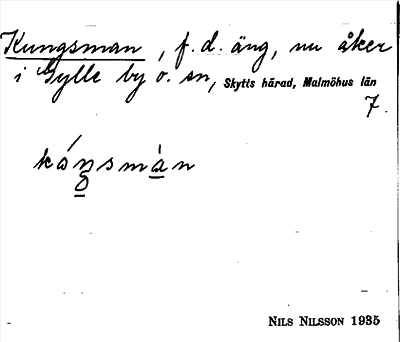 Kungsman, f. d. äng, nu åker
i Gylle by o. sn, Skytts härad, Malmöhus län
7.
NILS NILSSON 1935